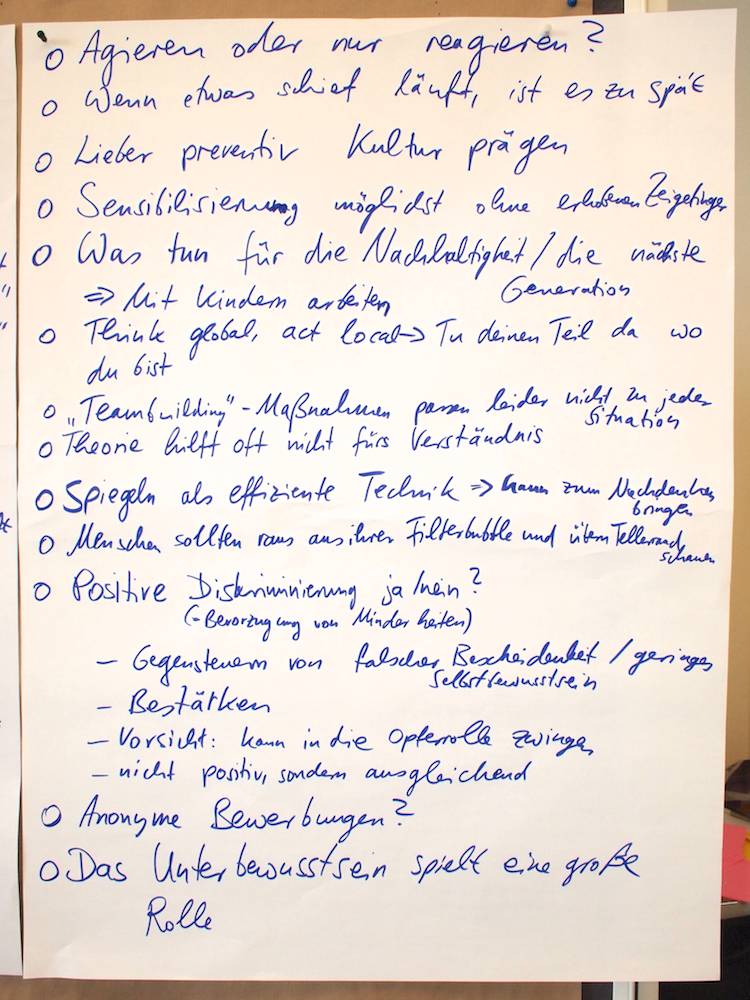 o Agieren oder nur reagieren?
o Wenn etwas schief läuft, ist es zu spät
o Lieber preventiv Kultur prägen
o Sensibilisierung möglichst ohne erhobenen Zeigefinger
o Was tun für die Nachhaltigkeit / die nächste
Generation
=> Mit Kindern arbeiten
o Think global, act local -> Tu deinen Teil da wo
du bist
o „Teambuilding"-Maßnahmen passen leider nicht zu jeder
Situation
o Theorie hilft oft nicht fürs Verständnis
o Spiegeln als effiziente Technik => kann zum Nachdenken
bringen
o Menschen sollten raus aus ihrer Filterbubble und übern Tellerrand
schauen
o Positive Diskriminierung ja/nein?
(=Bevorzugung von Minderheiten)
- Gegensteuern von falscher Bescheidenheit / geringes
Selbstbewusstsein
- Bestärken
- Vorsicht: kann in die Opferrolle zwingen
- nicht positiv, sondern ausgleichend
o Anonyme Bewerbungen?
o Das Unterbewusstsein spielt eine große
Rolle